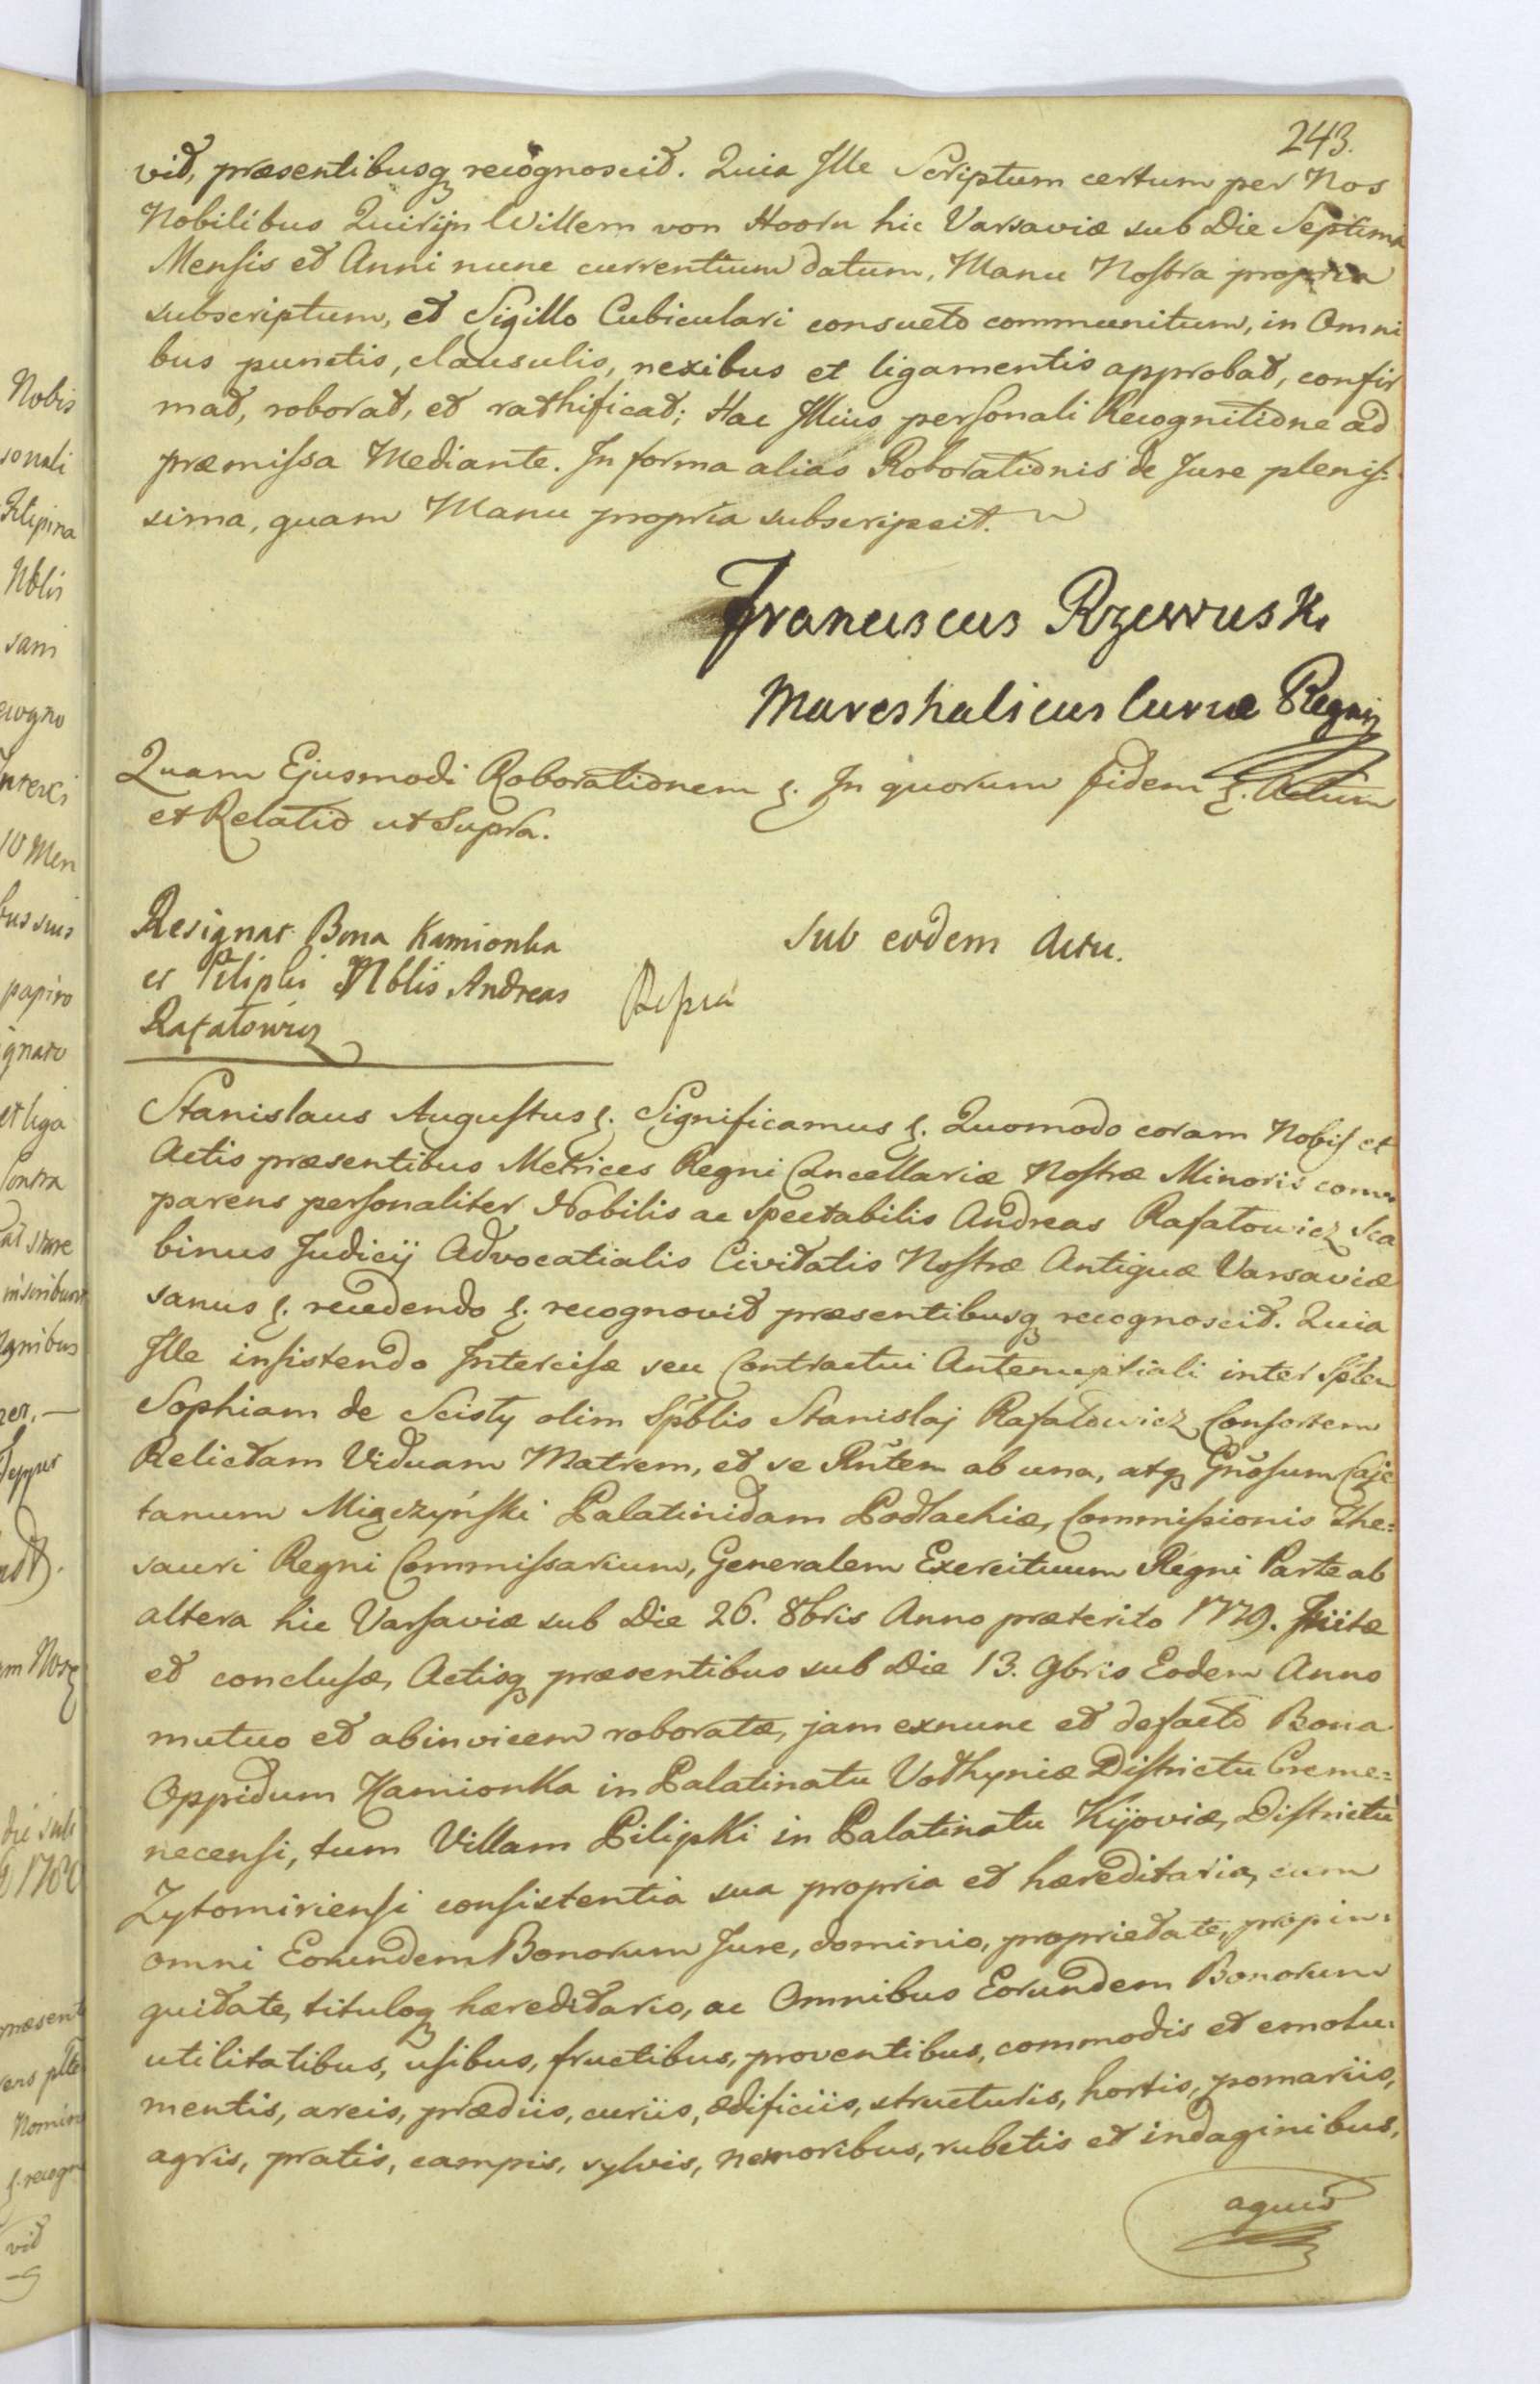 243.
vit, præsentibusq recognoscit. Quia Ille Scriptum certum per Nos
Nobilibus Quirijn Willem von Hoorn hic Varsaviæ sub Die Septima
Mensis et Anni nunc currentium datum, Manu Nostra propria
subscriptum, et Sigillo Cubiculari consueto communitum, in Omni
bus punctis, clausulis, nexibus et ligamentis approbat, confir
mat, roborat, et rathificat; Hac Illius personali Recognitione ad
præmissa Mediante. In forma alias Roborationis de Jure plenis:
sima, quam Manu propria subscripsit.
Franciscus Rzewuski
Mareshalicus Curiæ Regni
Quam Ejusmodi Roborationem &. In quorum fidem &. Actum
et Relatio ut Supra.
Resignat Bona Kamionka
et Pilipki Nblis Andreas
Rafałowicz
Sub eodem Actu.
Stanislaus Augustus &. Significamus &. Quomodo coram Nobis et
Actis præsentibus Metrices Regni Cancellariæ Nostræ Minoris com
parens personaliter Nobilis ac Spectabilis Andreas Rafałowicz Sca
binus Judicij Advocatialis Civitatis Nostræ Antiquæ Varsaviæ
sanus &. recedendo &. recognovit præsentibusq recognoscit. Quia
Ille insistendo Intercisæ seu Contractui Antenuptiali inter Spblem
Sophiam de Scisty olim Spblis Stanislaj Rafałowicz Consortem
Relictam Viduam Matrem, et se Rntem ab una, atq Gnosum Caje
tanum Miączyński Palatinidam Podlachiæ, Commissionis The=
sauri Regni Commissarium, Generalem Exercituum Regni Parte ab
altera hic Varsaviæ sub Die 26. 8bris Anno præterito 1779. Initæ
et conclusæ, Actisq præsentibus sub Die 13. 9bris Eodem Anno
mutuo et abinvicem roboratæ, jam exnunc et defacto Bona
Oppidum Kamionka in Palatinatu Volhyniæ Districtu Creme=
necensi, tum Villam Pilipki in Palatinatu Kijoviæ, Districtu
Zytomiriensi consistentia sua propria et hæreditaria, cum
omni Eorundem Bonorum Jure, dominio, proprietate, propin:
quitate, tituloq hæreditario, ac Omnibus Eorundem Bonorum
utilitatibus, usibus, fructibus, proventibus, commodis et emolu:
mentis, areis, prædiis, curiis, ædificiis, structuris, hortis, pomariis,
agris, pratis, campis, sylvis, nemoribus, rubetis et indaginibus,
aquis